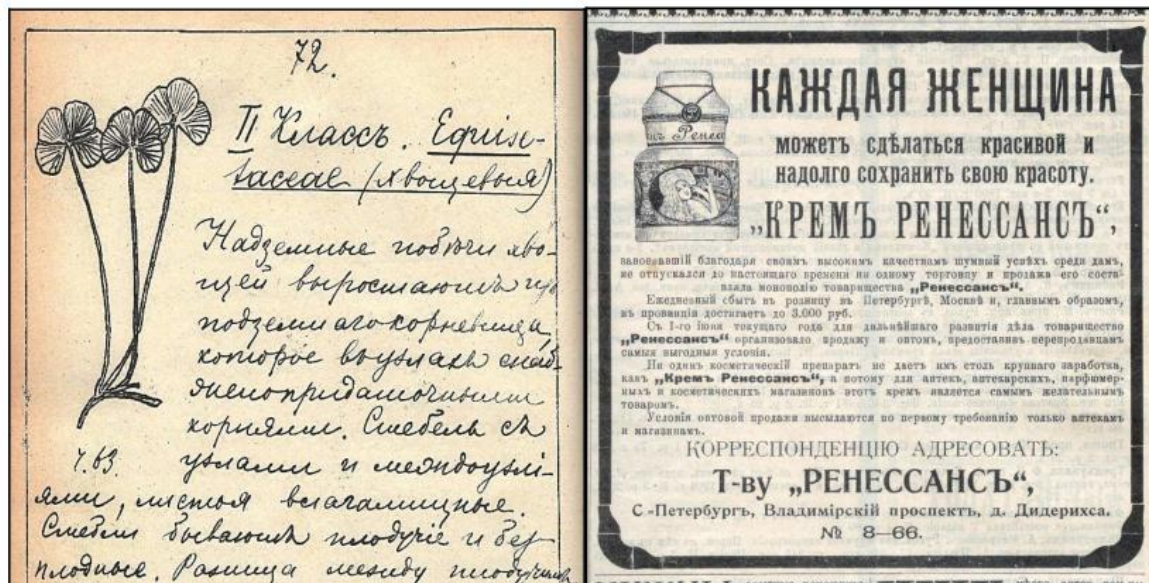 72.
II Классъ. Equise-
taceae (хвощевыя)
Надземные побѣги хво-
щей выростаютъ изъ
подземнаго корневища,
которое въ узлахъ снаб-
жено придаточными
корнями. Стебель съ
узлами и междоузлі-
ями, листья влагалищные.
Стебли бываютъ плодучіе и без-
плодные. Разница между плодучими
КАЖДАЯ ЖЕНЩИНА
можетъ сдѣлаться красивой и
надолго сохранить свою красоту.
„КРЕМЪ РЕНЕССАНСЪ“,
завоевавшій благодаря своимъ высокимъ качествамъ шумный успѣхъ среди дамъ,
не отпускался до настоящаго времени ни одному торговцу и продажа его соста-
вляла монополію товарищества „Ренессансъ“.
Ежедневный сбытъ въ розницу въ Петербургѣ, Москвѣ и, главнымъ образомъ,
въ провинціи достигаетъ до 3.000 руб.
Съ 1-го іюня текущаго года для дальнѣйшаго развитія дѣла товарищество
„Ренессансъ“ организовало продажу и оптомъ, предоставивъ перепродавцамъ
самыя выгодныя условія.
Ни одинъ косметическій препаратъ не даетъ имъ столь крупнаго заработка,
какъ „Кремъ Ренессансъ“, а потому для аптекъ, аптекарскихъ, парфюмер-
ныхъ и косметическихъ магазиновъ этотъ кремъ является самымъ желательнымъ
товаромъ.
Условія оптовой продажи высылаются по первому требованію только аптекамъ
и магазинамъ.
КОРРЕСПОНДЕНЦІЮ АДРЕСОВАТЬ:
Т-ву „РЕНЕССАНСЪ“,
С.-Петербургъ, Владимірскій проспектъ, д. Дидерихса.
№ 8—66.